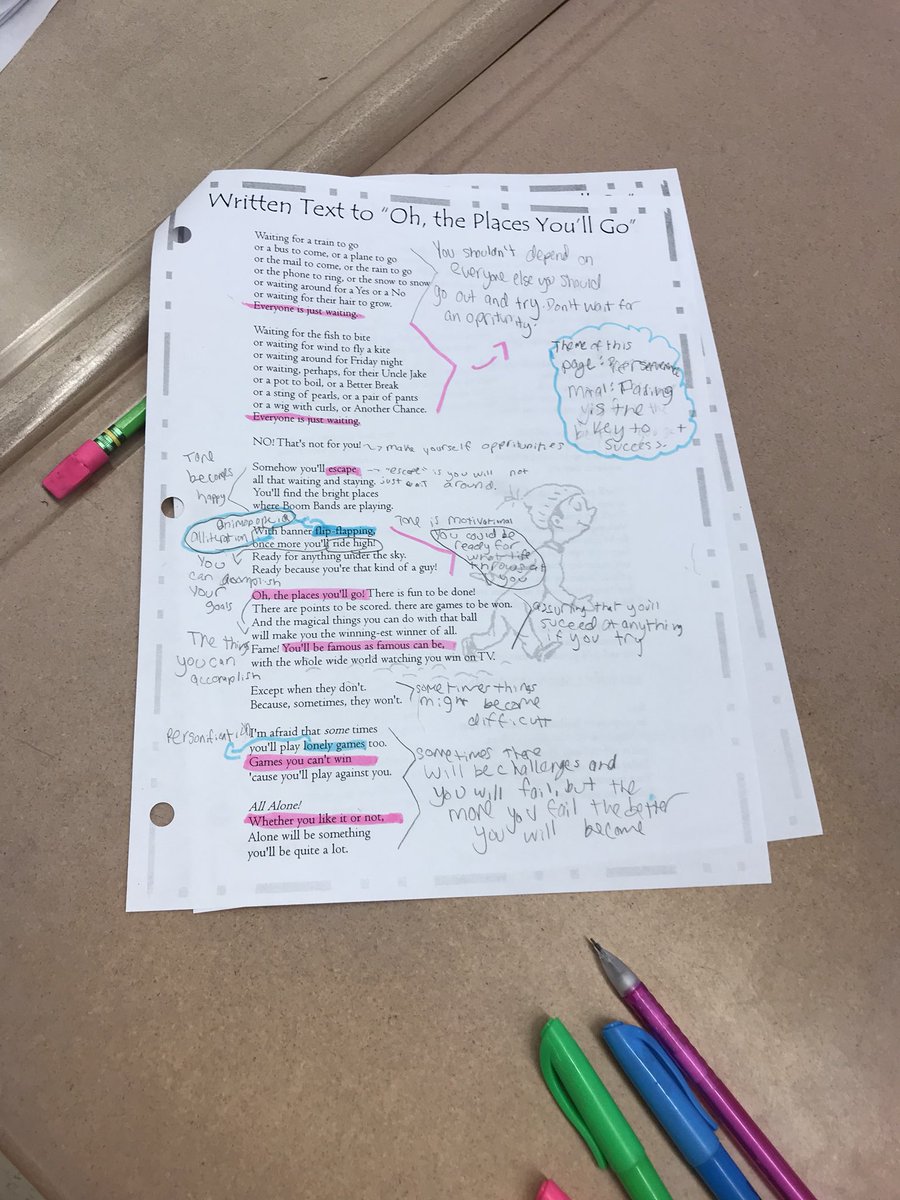 Written Text to "Oh, the Places You'll Go"
Waiting for a train to go
or a bus to come, or a plane to go
or the mail to come, or the rain to go
or the phone to ring, or the snow to snow
or waiting around for a Yes or a No
or waiting for their hair to grow.
Everyone is just waiting.
You shouldn't depend on
everyone else you should
go out and try. Don't wait for
an opritunity.
Waiting for the fish to bite
or waiting for wind to fly a kite
or waiting around for Friday night
or waiting, perhaps, for their Uncle Jake
or a pot to boil, or a Better Break
or a sting of pearls, or a pair of pants
or a wig with curls, or Another Chance.
Everyone is just waiting.
Theme of this
page:
Moral:
is the
key to
success
NO! That's not for you! make yourself oppritunities
Tone
becomes
happy
Somehow you'll escape
all that waiting and staying.
You'll find the bright places
where Boom Bands are playing.
"escape" is you will not
just wait around.
onimonopeia
alliteration
With banner flip-flapping,
once more you'll ride high!
Ready for anything under the sky.
Ready because you're that kind of a guy!
Tone is motivational
You could be
ready for
what life
throws at
you
You
can accomplish
your
goals
Oh, the places you'll go! There is fun to be done!
There are points to be scored. there are games to be won.
And the magical things you can do with that ball
will make you the winning-est winner of all.
Fame! You'll be famous as famous can be,
with the whole wide world watching you win on TV.
The things
you can
accomplish
assuring that you'll
suceed at anything
if you try
Except when they don't.
Because, sometimes, they won't.
sometimes things
might become
difficult
Personification
I'm afraid that some times
you'll play lonely games too.
Games you can't win
'cause you'll play against you.
All Alone!
Whether you like it or not,
Alone will be something
you'll be quite a lot.
sometimes there
will be challenges and
you will fail, but the
more you fail the better
you will become